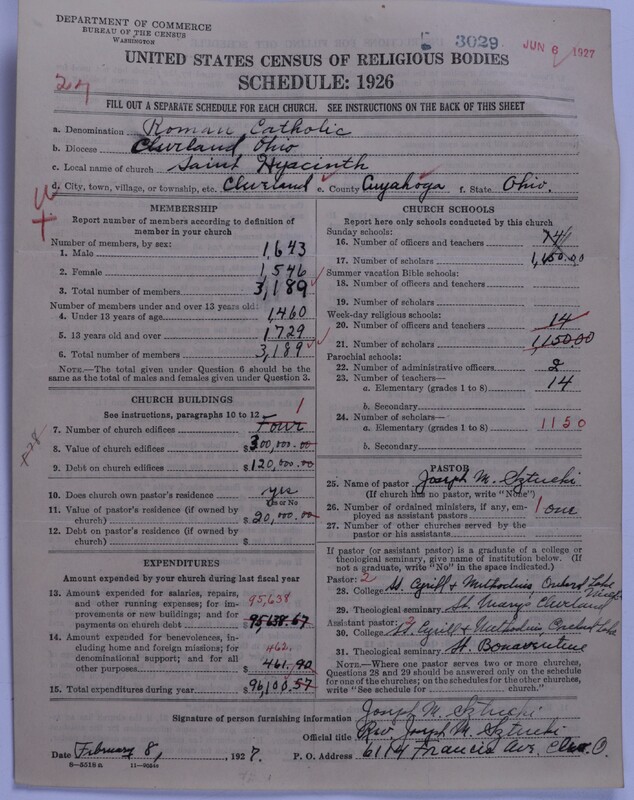 DEPARTMENT OF COMMERCE
BUREAU OF THE CENSUS
WASHINGTON
3029
JUN 6 1927
UNITED STATES CENSUS OF RELIGIOUS BODIES
SCHEDULE: 1926
FILL OUT A SEPARATE SCHEDULE FOR EACH CHURCH. SEE INSTRUCTIONS ON THE BACK OF THIS SHEET
a. Denomination Roman Catholic
b. Diocese Cleveland Ohio
c. Local name of church Saint Hyacinth
d. City, town, village, or township, etc. Cleveland e. County Cuyahoga f. State Ohio.
MEMBERSHIP
Report number of members according to definition of
member in your church
Number of members, by sex:
1. Male 1,643
2. Female 1,546
3. Total number of members 3,189
Number of members under and over 13 years old:
4. Under 13 years of age 1,460
5. 13 years old and over 1,729
6. Total number of members 3,189
NOTE.—The total given under Question 6 should be
same as the total of males and females given under Question 3.
CHURCH BUILDINGS
See instructions, paragraphs 10 to 12
1
7. Number of church edifices Four
8. Value of church edifices $300,000.00
9. Debt on church edifices $120,000.00
10. Does church own pastor's residence yes
Yes or No
11. Value of pastor's residence (if owned by
church) $20,000.00
12. Debt on pastor's residence (if owned by
church) $
EXPENDITURES
Amount expended by your church during last fiscal year
13. Amount expended for salaries, repairs,
and other running expenses; for im-
provements or new buildings; and for
payments on church debt 95,638
$95,638.67
14. Amount expended for benevolences,
including home and foreign missions; for
denominational support; and for all
other purposes 462.
$461.90
15. Total expenditures during year $96,100.57
CHURCH SCHOOLS
Report here only schools conducted by this church
Sunday schools:
16. Number of officers and teachers 14
17. Number of scholars 1,150.00
Summer vacation Bible schools:
18. Number of officers and teachers
19. Number of scholars
Week-day religious schools:
20. Number of officers and teachers 14
21. Number of scholars 1,150.00
Parochial schools:
22. Number of administrative officers 2
23. Number of teachers—
a. Elementary (grades 1 to 8) 14
b. Secondary
24. Number of scholars—
a. Elementary (grades 1 to 8) 1150
b. Secondary
PASTOR
25. Name of pastor Joseph M. Sztucki
(If church has no pastor, write "None")
26. Number of ordained ministers, if any, em-
ployed as assistant pastors 1 one
27. Number of other churches served by the
pastor or his assistants
If pastor (or assistant pastor) is a graduate of a college or
theological seminary, give name of institution below. (If
not a graduate, write "No" in the space indicated.)
Pastor: 2
28. College St. Cyrill & Methodius, Orchard Lake Mich
29. Theological seminary St. Mary's Cleveland
Assistant pastor: 2
30. College St. Cyrill & Methodius, Orchard Lake
31. Theological seminary St. Bonaventure
NOTE.—Where one pastor serves two or more churches,
Questions 28 and 29 should be answered only on the schedule
for one of the churches; on the schedules for the other churches,
write "See schedule for church."
Signature of person furnishing information Joseph M. Sztucki
Official title Rev. Joseph M. Sztucki
Date February 8, 1927. P. O. Address 6114 Francis Ave. Clev. O.
8—5518 a